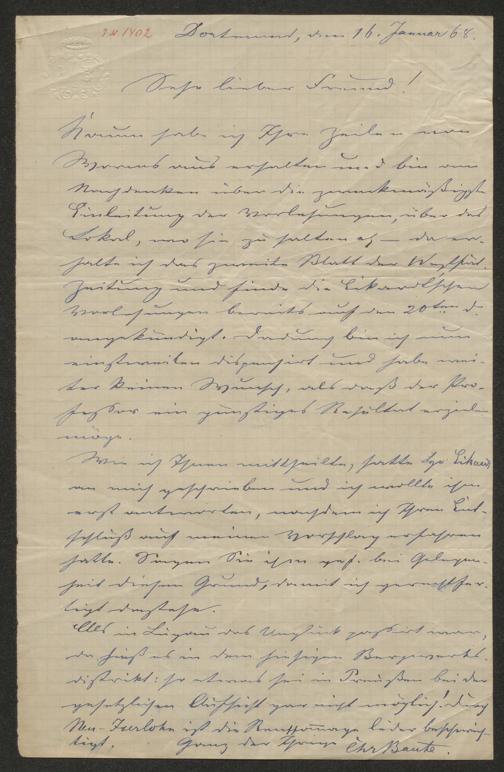 I.N. 1402
Dortmund, den 16. Januar 68.
Sehr lieber Freund!
Kaum habe ich Ihre Zeilen von
Worms aus erhalten und bin am
Nachdenken über die zweckmäßigste
Einleitung der Vorlesungen, über das
Lokal, wo sie zu halten etc — da er-
halte ich das zweite Blatt der Westfäl.
Zeitung und finde die Eckardt'schen
Vorlesungen bereits auf den 20ten d.
angekündigt. Dadurch bin ich nun
einstweilen dispensirt und habe wei-
ter keinen Wunsch, als daß der Pro-
fessor ein günstiges Resultat erzielen
möge.
Wie ich Ihnen mittheilte, hatte Eckardt
an mich geschrieben und ich wollte ihm
erst antworten, nachdem ich Ihren Ent-
schluß auf meinen Vorschlag erfahren
hatte. Sagen Sie ihm gef. bei Gelegen-
heit diesen Grund, damit ich gerechtfer-
tigt dastehe.
Als in Lugau das Unglück passirt war,
da hieß es in dem hiesigen Bergwerks-
distrikt: so etwas sei in Preußen bei der
gesetzlichen Aufsicht gar nicht möglich! Durch
Neu-Iserlohn ist die Renommage leider beschwich-
tigt. Ganz der Ihrige